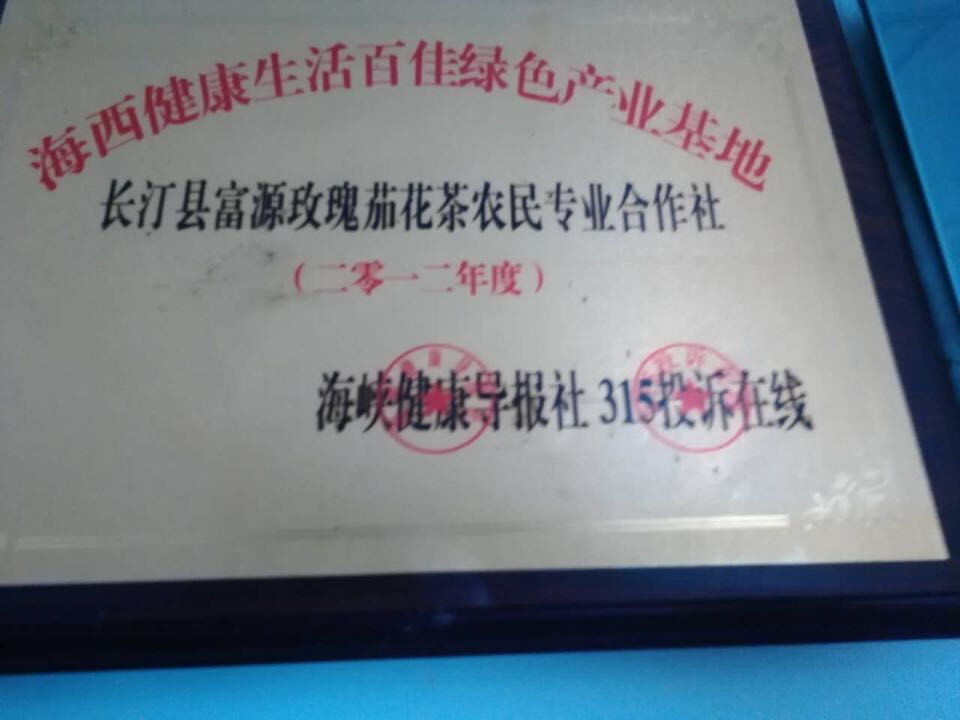 海西健康生活百佳绿色产业基地
长汀县富源玫瑰茄花茶农民专业合作社
（二零一二年度）
海峡健康导报社 315投诉在线